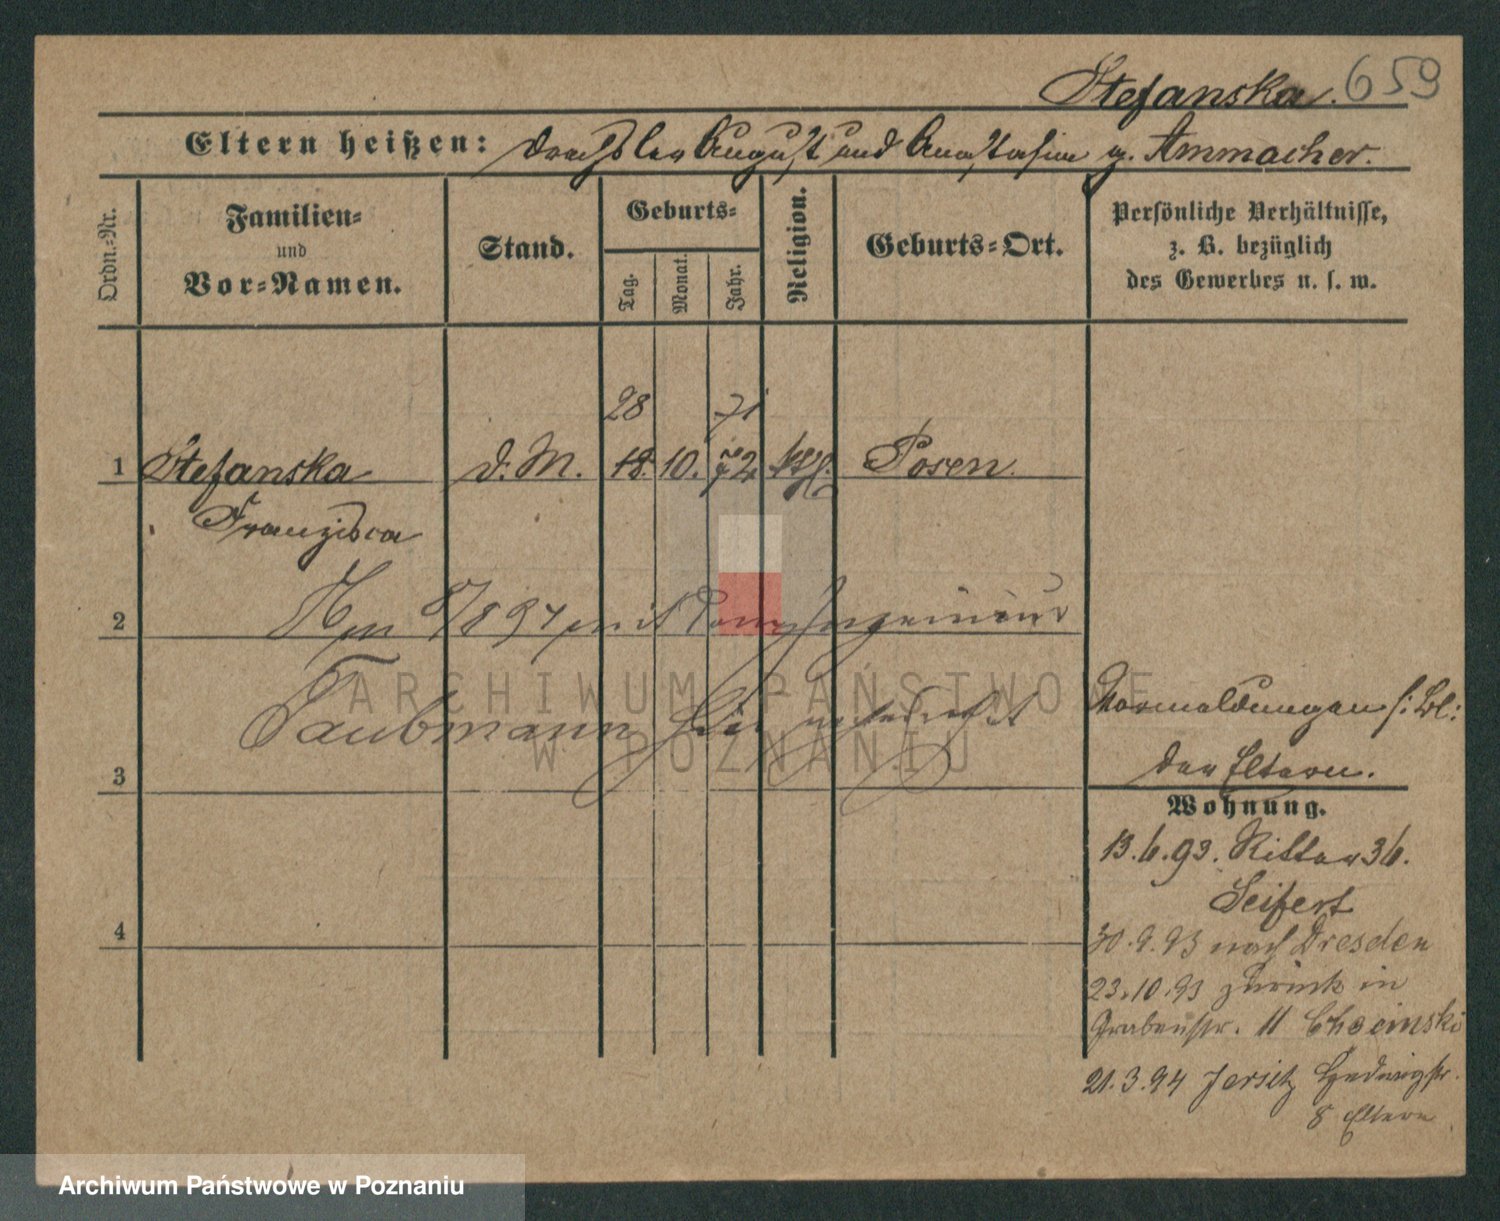 Stefanska. 659
Eltern heißen: Drechsler August und Anastasia g. Ammacher.
Ordn.=Nr.
Familien=
und
Vor=Namen.
Stand.
Geburts=
Tag.
Monat.
Jahr.
Religion.
Geburts=Ort.
Persönliche Verhältnisse,
z. B. bezüglich
des Gewerbes u. s. w.
28 71
1 Stefanska d. M. 18. 10. 72 kth. Posen.
Franzisca
2 8/8 94 mit dem Ingenieur
Taubmann
3
4
Vormeldungen s. Bl:
der Eltern.
Wohnung.
13.6.93. Ritter 36.
Seifert
30.9.93 nach Dresden
23.10.93 zurück in
Grabenstr. 11 Choinski
21.3.94 Jersitz Hedwigstr.
8 Eltern
ARCHIWUM PAŃSTWOWE
W POZNANIU
Archiwum Państwowe w Poznaniu